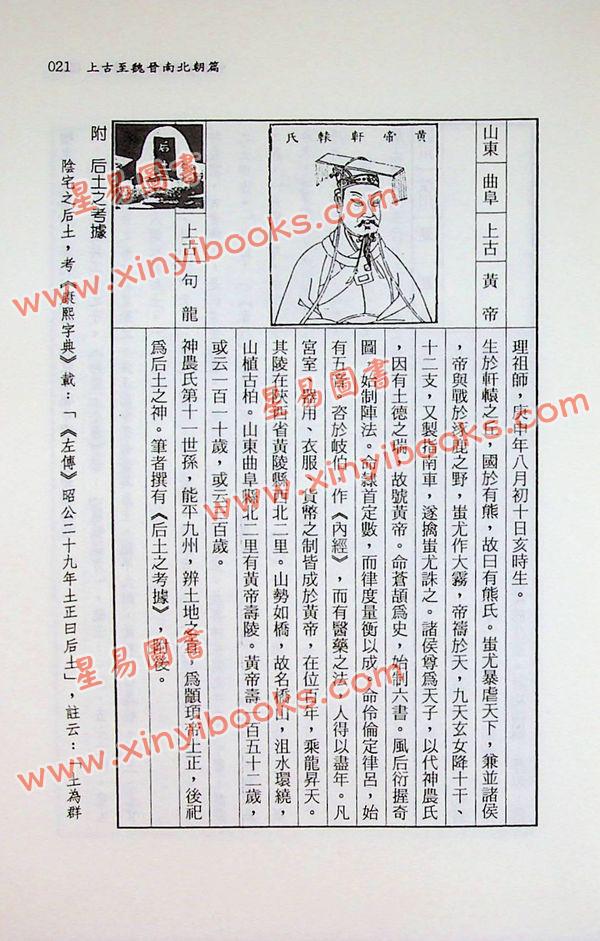 021 上古至魏晉南北朝篇
山東 曲阜 上古 黃帝
黃帝軒轅氏
理祖師，庚申年八月初十日亥時生。
生於軒轅之丘，國於有熊，故曰有熊氏。蚩尤暴虐天下，兼並諸侯
，帝與戰於涿鹿之野，蚩尤作大霧，帝禱於天，九天玄女降十干、
十二支，又製指南車，遂擒蚩尤誅之。諸侯尊爲天子，以代神農氏
，因有土德之瑞，故號黃帝。命蒼頡爲史，始制六書。風后衍握奇
圖，始制陣法。命隸首定數，而律度量衡以成。命伶倫定律呂，始
有五音。咨於岐伯，作《內經》，而有醫藥之法，人得以盡年。凡
宮室、器用、衣服、貨幣之制皆成於黃帝，在位百年，乘龍昇天。
其陵在陝西省黃陵縣西北二里。山勢如橋，故名橋山，沮水環繞，
山植古柏。山東曲阜縣北二里有黃帝壽陵。黃帝壽一百五十二歲，
或云一百一十歲，或云三百歲。
上古 句龍
后
神農氏第十一世孫，能平九州，辨土地之宜，爲顓頊帝土正，後祀
爲后土之神。筆者撰有《后土之考據》，附後。
附 后土之考據
陰宅之后土，考《康熙字典》載：「《左傳》昭公二十九年土正曰后土」，註云：「土為群
星易圖書
www.xinyibooks.com
星易圖書
www.xinyibooks.com
星易圖書
www.xinyibooks.com